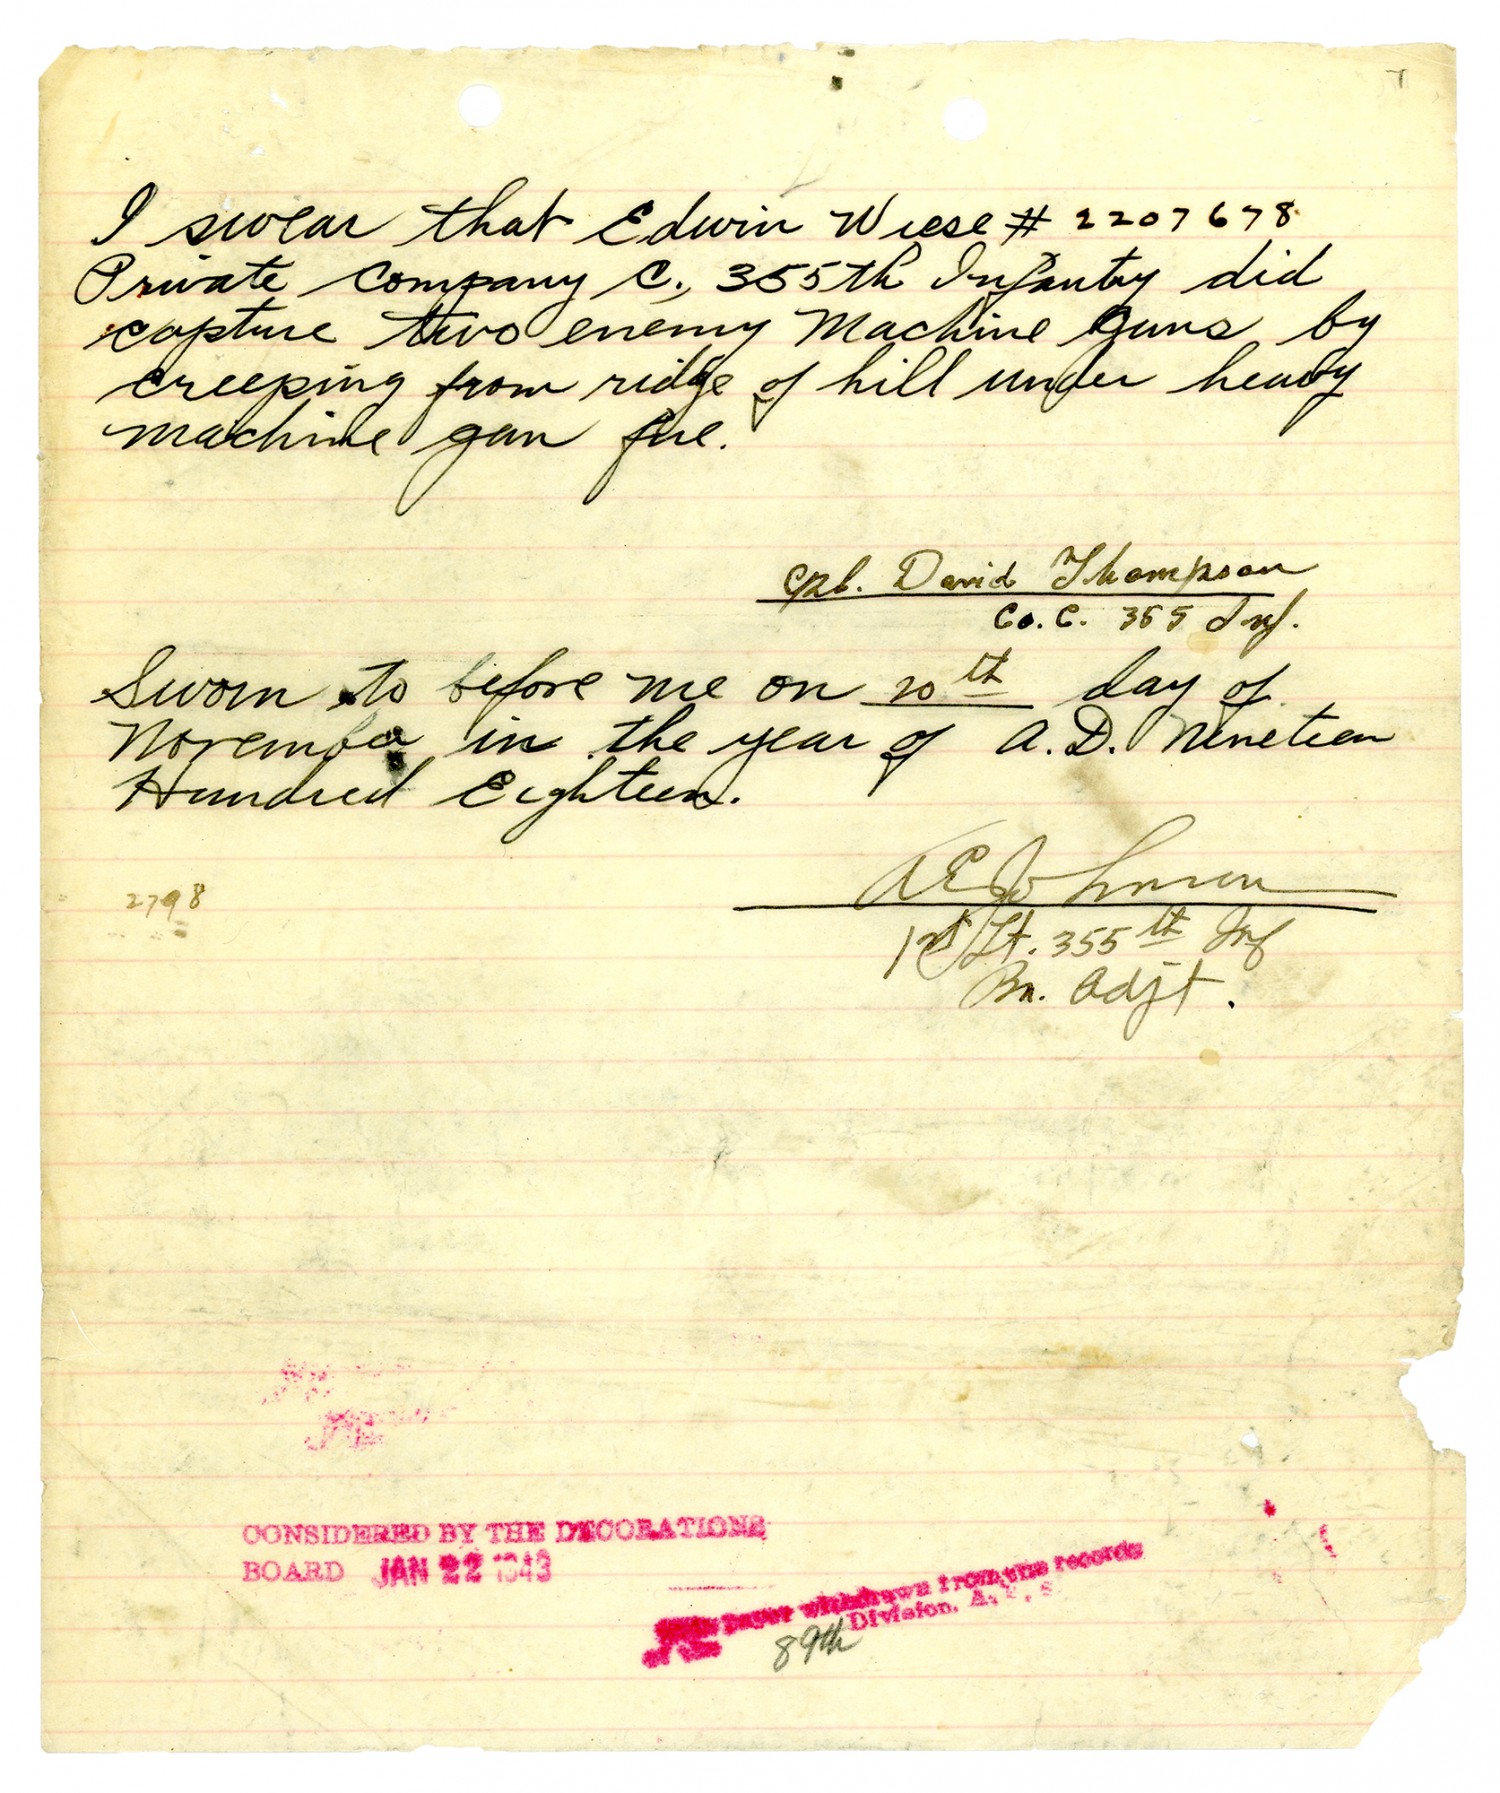 7
I swear that Edwin Wiese # 2207678
Private Company C., 355th Infantry did
capture two enemy Machine guns by
creeping from ridge of hill under heavy
machine gun fire.
Cpl. David Thompson
Co. C. 355 Inf.
Sworn to before me on 20th day of
November in the year of A.D. Nineteen
Hundred Eighteen.
A E Johnson
2798
1st Lt. 355th Inf
Bn. Adjt.
CONSIDERED BY THE DECORATIONS
BOARD JAN 22 1943
paper withdrawn from the records
of the 89th Division, A.